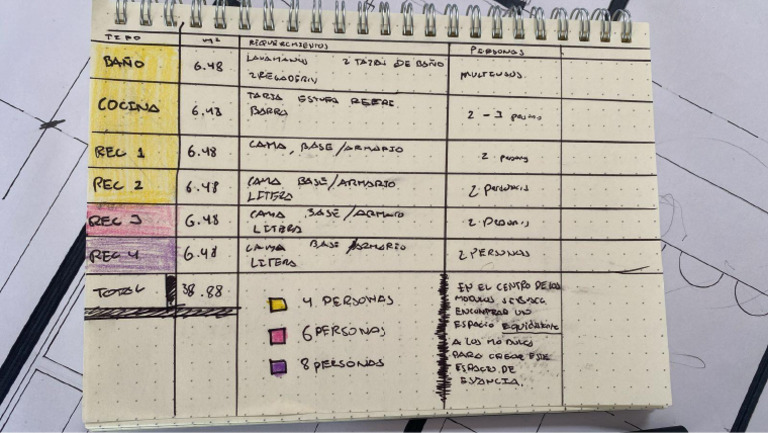 TIPO m² REQUERIMIENTOS PERSONAS
BAÑO 6.48 LAVAMANOS 2 TAZAS DE BAÑO MULTIUSOS
2 REGADERAS
COCINA 6.48 TARJA ESTUFA REFRI 2 - 3 personas
BARRA
REC 1 6.48 CAMA, BASE/ARMARIO 2 personas
REC 2 6.48 CAMA BASE/ARMARIO 2 personas
LITERA
REC 3 6.48 CAMA BASE/ARMARIO 2 personas
LITERA
REC 4 6.48 CAMA BASE ARMARIO 2 PERSONAS
LITERA
TOTAL 38.88
4 PERSONAS
6 PERSONAS
8 PERSONAS
EN EL CENTRO DE LOS
MODULOS SE BUSCA
ENCONTRAR UN
ESPACIO EQUIDISTANTE
A LOS MODULOS
PARA CREAR ESE
ESPACIO DE
ESTANCIA.